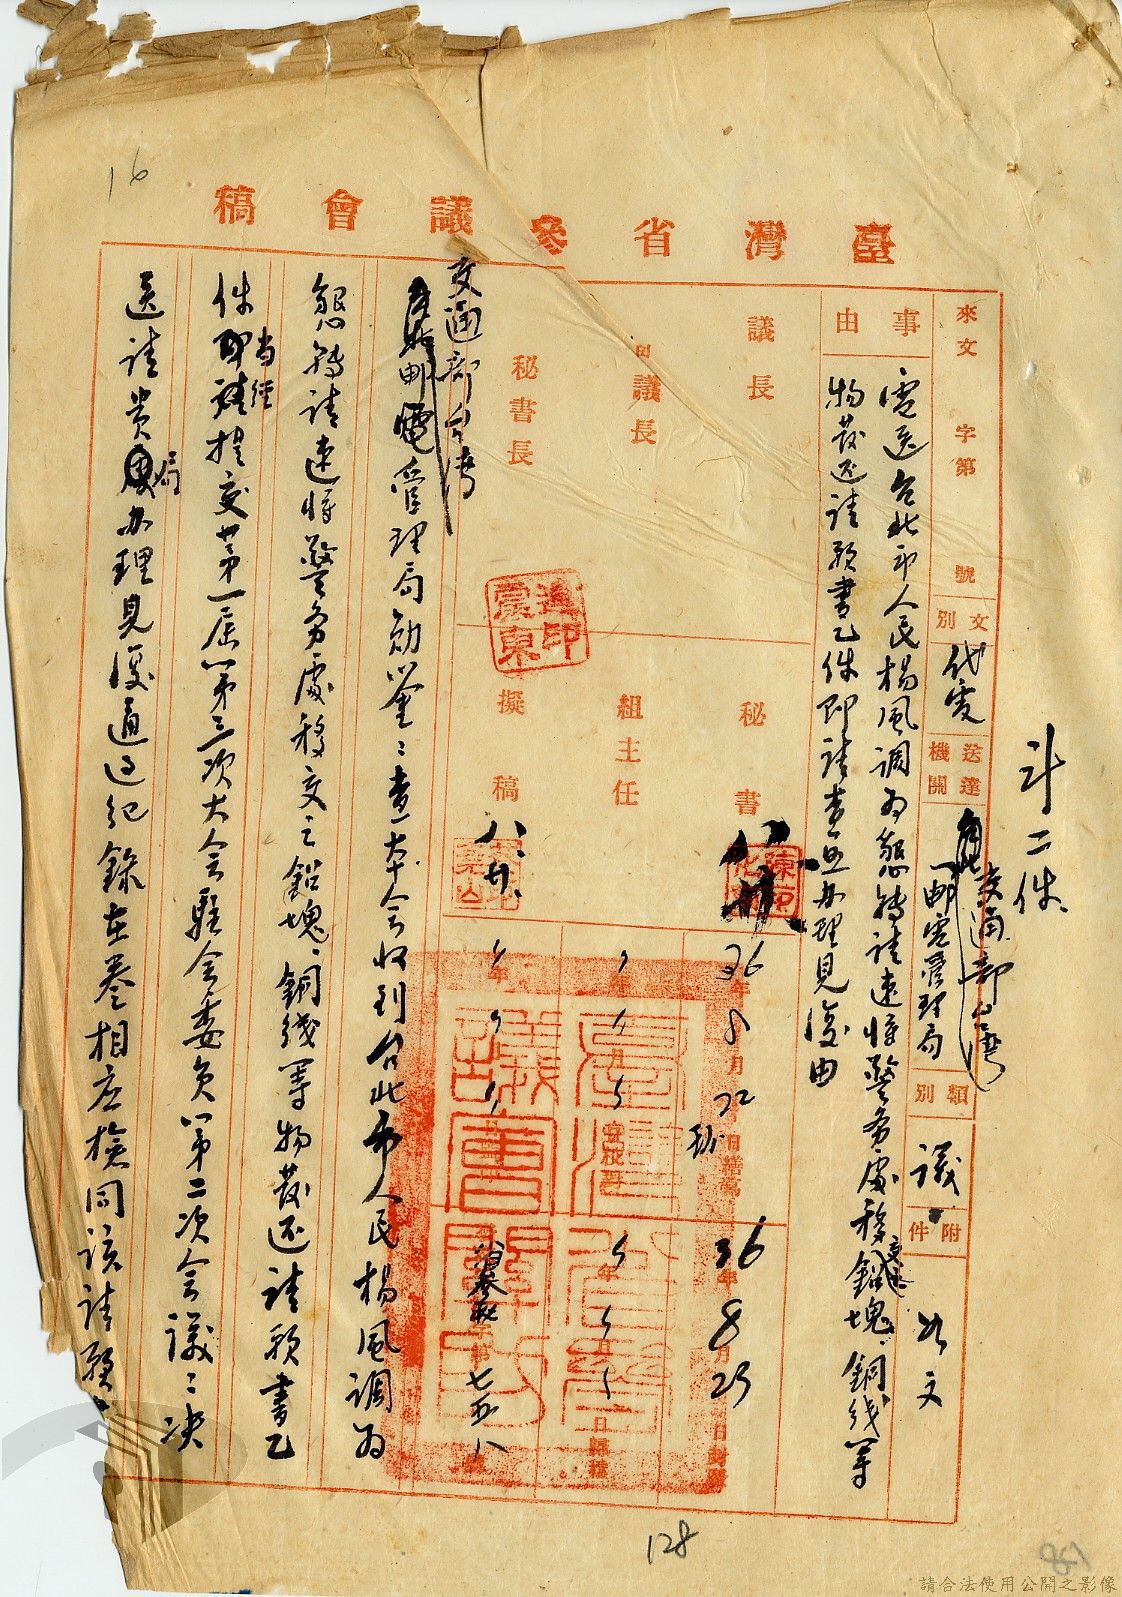 臺灣省參議會稿
計二件
來文 字第 號
文別 代電
送達機關 交通部台灣郵電管理局
類別 議
附件 如文
事由
電送台北市人民楊風調為懇轉請速將警務處移交之鉛塊、銅线等
物發还請願書乙件即請查照办理見復由
議長
副議長
秘書長
秘書
組主任
擬稿 八、廿、
36年8月22日繕寫
36年8月23日封發
年 月 日收到
年 月 日歸檔
省參秘字第七五八號
交通部台湾
郵電管理局勛鑒：查本会收到台北市人民楊風調为
懇轉請速將警务處移交之鉛塊、銅线等物發还請願書乙
件當經提交第一届第三次大会駐会委員第二次会議：決
送請貴局办理見復通过紀錄在卷相应檢同該請願
16
128
請合法使用公開之影像